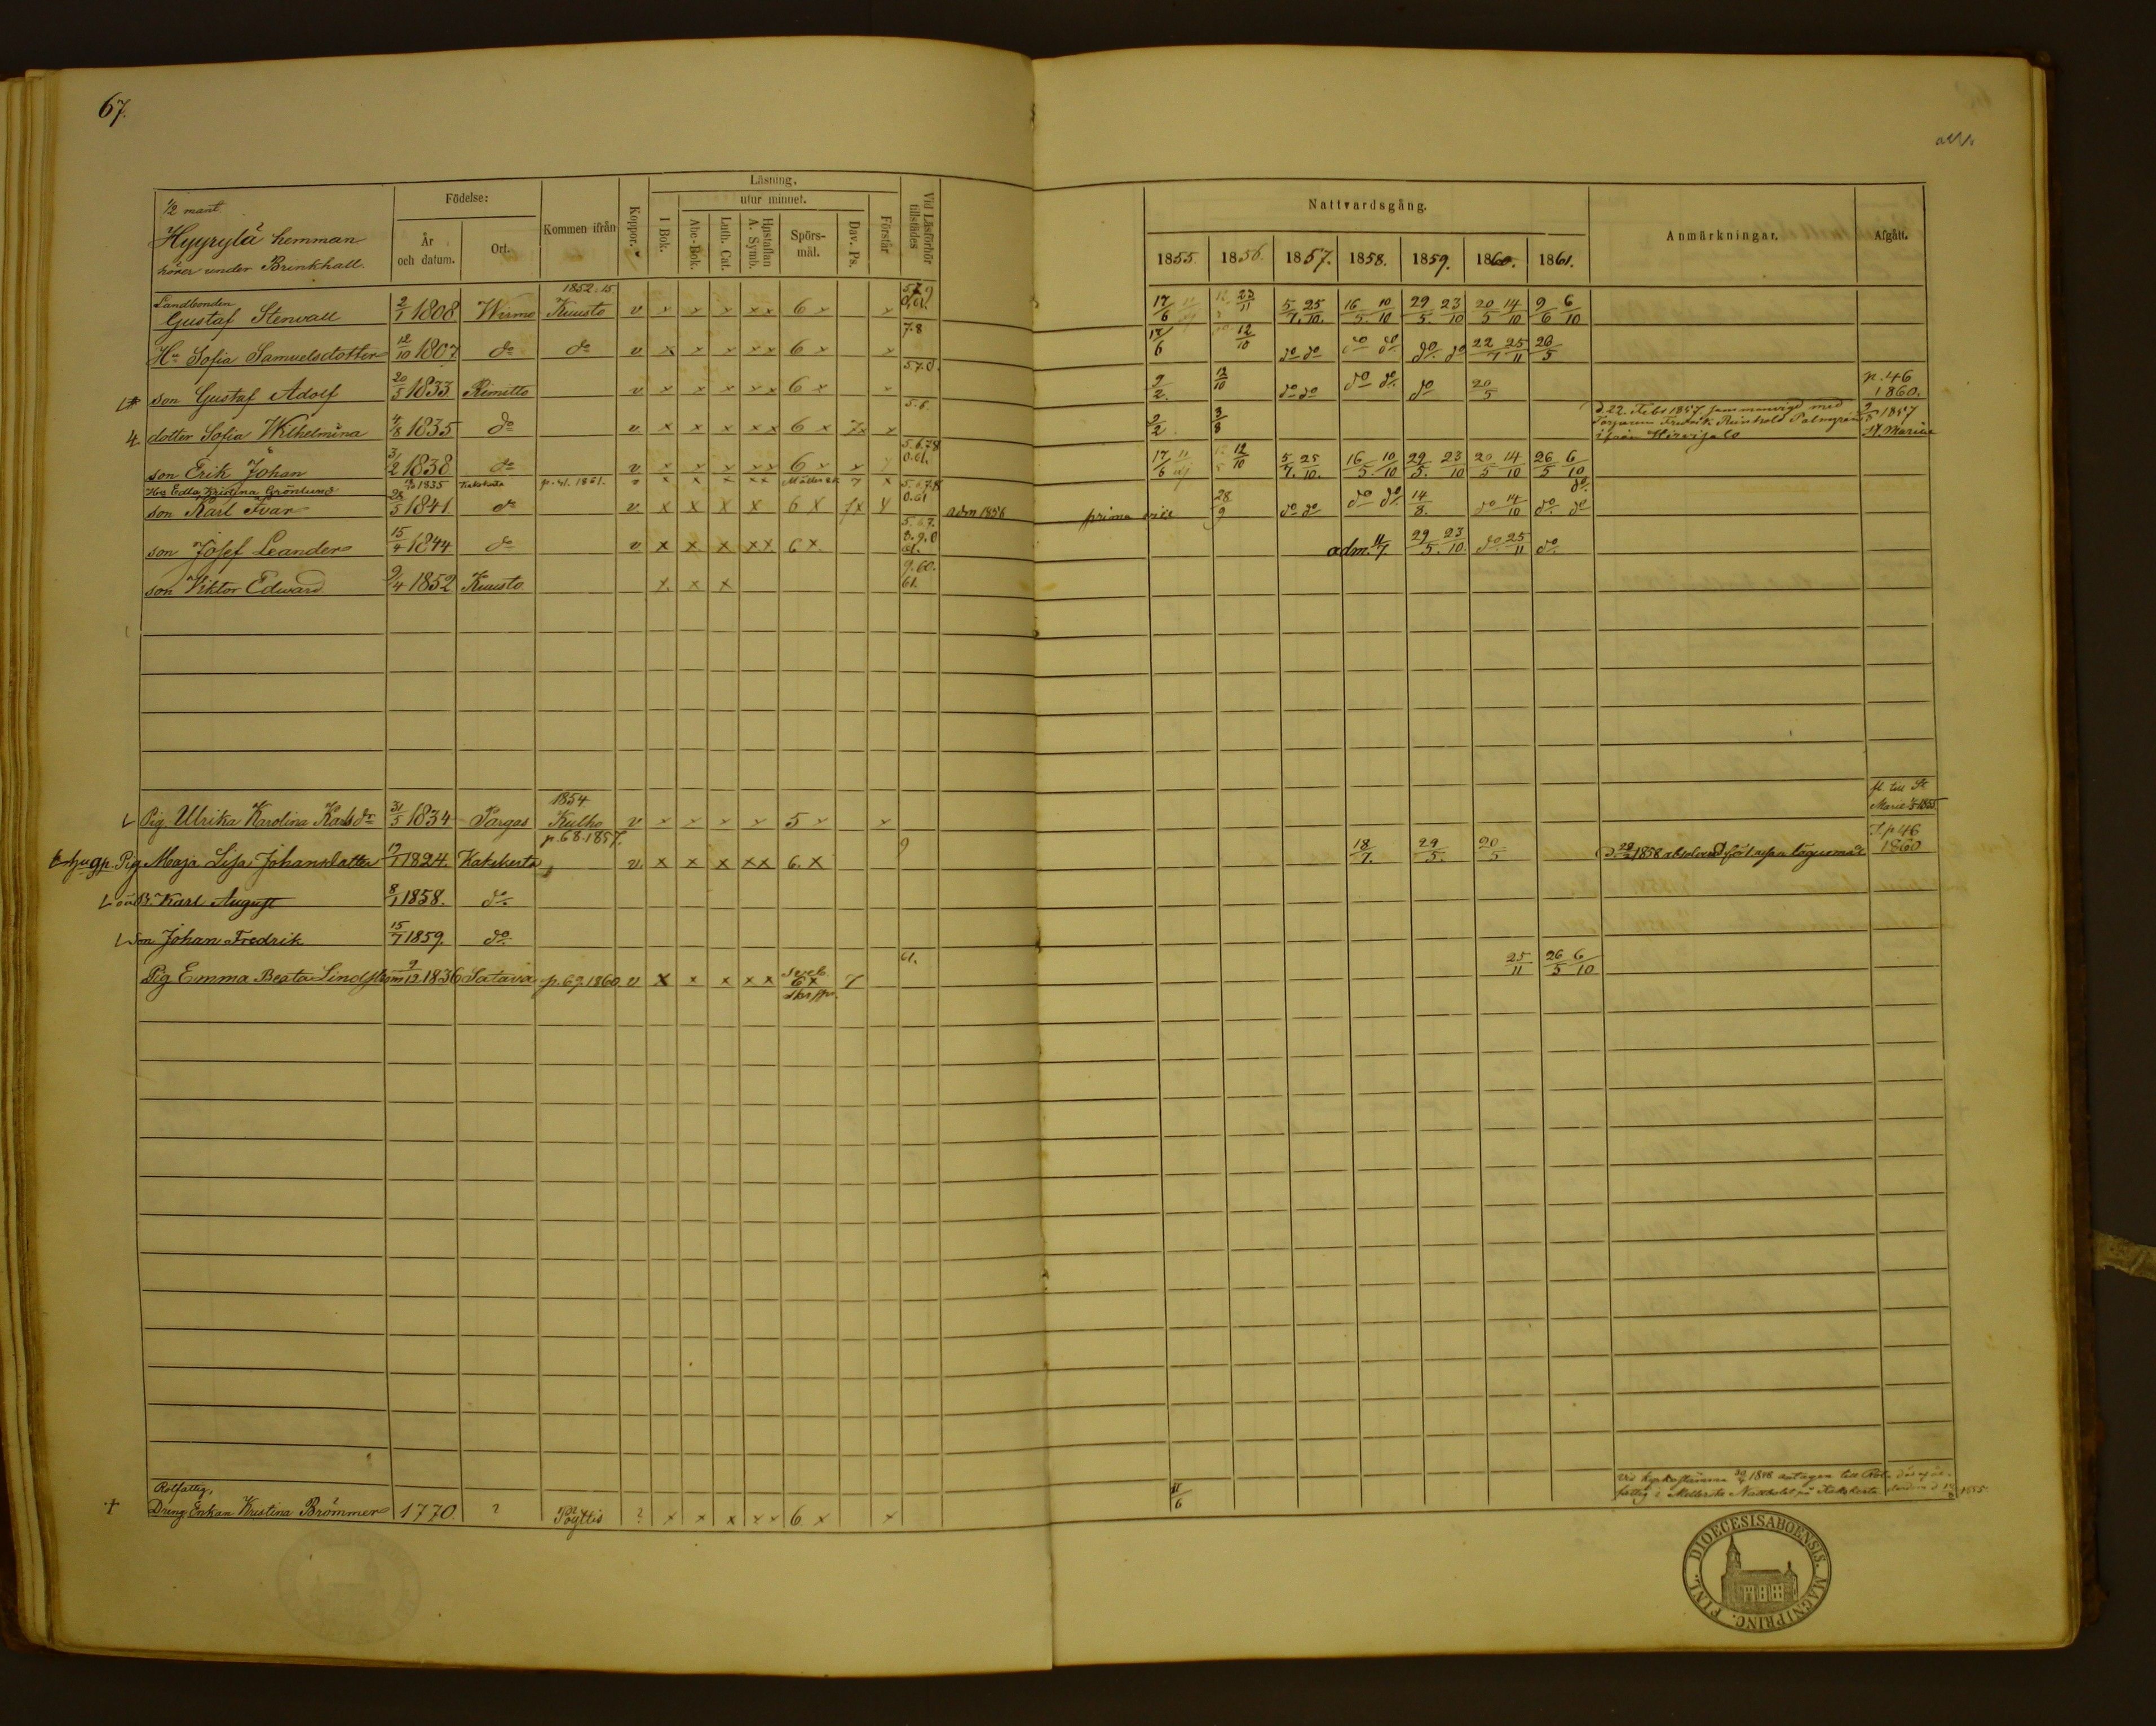 67.
1/2 mant.
Hyyrylä hemman
hörer under Brinkhall.
Födelse:
År och datum.
Ort.
Kommen ifrån
Koppor.
Läsning,
I Bok.
utur minnet.
Abc-Bok.
Luth. Cat.
Hustaflan A. Symb.
Spörsmål.
Dav. Ps.
Förstår
Vid Läsförhör tillstädes
Nattvardsgång.
1855. 1856. 1857. 1858. 1859. 1860. 1861.
Anmärkningar.
Afgått.
Landbonden
Gustaf Stenvall 2/1 1808 Wirmo 1852. 15. Kuusto v x x x x x 6 x x 17/6 23/11 5/7. 25/10. 16/5. 10/10 29/5. 23/10 20/5 14/10 9/6 6/10
Hu Sofia Samuelsdotter 12/10 1807 do do v x x x x x 6 x x 7.8 17/6 12/10 do do do do do do 22/7 25/11 26/5
son Gustaf Adolf 20/5 1833 Rimitto v x x x x x 6 x x 5.7.8. 2/2. 12/10 do do do do do 20/5 p. 46 1860.
4. dotter Sofia Wilhelmina 4/8 1835 do v x x x x x 6 x 7x x 5.6. 2/2 3/8 d. 22. Febr 1857 sammanvigd med
Torparen Fredrik Reinhold Palmgren
ifrån Hirvisalo
1857 St Mariæ
son Erik Johan 31/2 1838 do v x x x x x 6 x x 5.6.7.8 0.61. 17/6 12/10 5/7. 25/10. 16/5. 10/10 29/5. 23/10 20/5 14/10 26/5 6/10
Hu Edla Kristina Grönlund 1835 Kakskerta p. 41. 1861. v x x x x x 7 x do
son Karl Ivar 28/5 1841 do v x x x x 6 x 7x 4 0.61 adm 1856 prima vice 28/9 do do do do 14/8. do 14/10 do do
son Josef Leander 15/4 1844 do v x x x x x 6 x. adm. 11/7. 29/5. 23/10. do 25/11 do
son Viktor Edward 9/4 1852 Kuusto x x x 9.60. 61.
Pig. Ulrika Karolina Karlsdr 31/5 1834 Pargas 1854 Kulho v x x x x 5 x x fl. till St Marie 1855.
Pig Maja Lisa Johansdotter 17/1 1824. Kakskerta p. 68. 1857. v. x x x x x 6. x 9 18/7. 29/5. 20/5 1858 absolverad för 1 resan lögersmål p 46 1860
Karl August 8/1 1858. do
son Johan Fredrik 15/7 1859. do
Pig Emma Beata Lindström 9/12 1836 Satava p. 69. 1860 v x x x x x 6 x 7 61. 25/11 26/5 6/10
Rotfattig,
+ Dreng Enkan Kristina Brommer 1770. ? Pöyttis ? x x x x x 6 x x 11/6 Vid Kyrkostämma 1848 antagen till Rot-
fattig i på Kakskerta 1855.
DIOECESIS ABOENSIS. MAGNI PRINC. FINL.